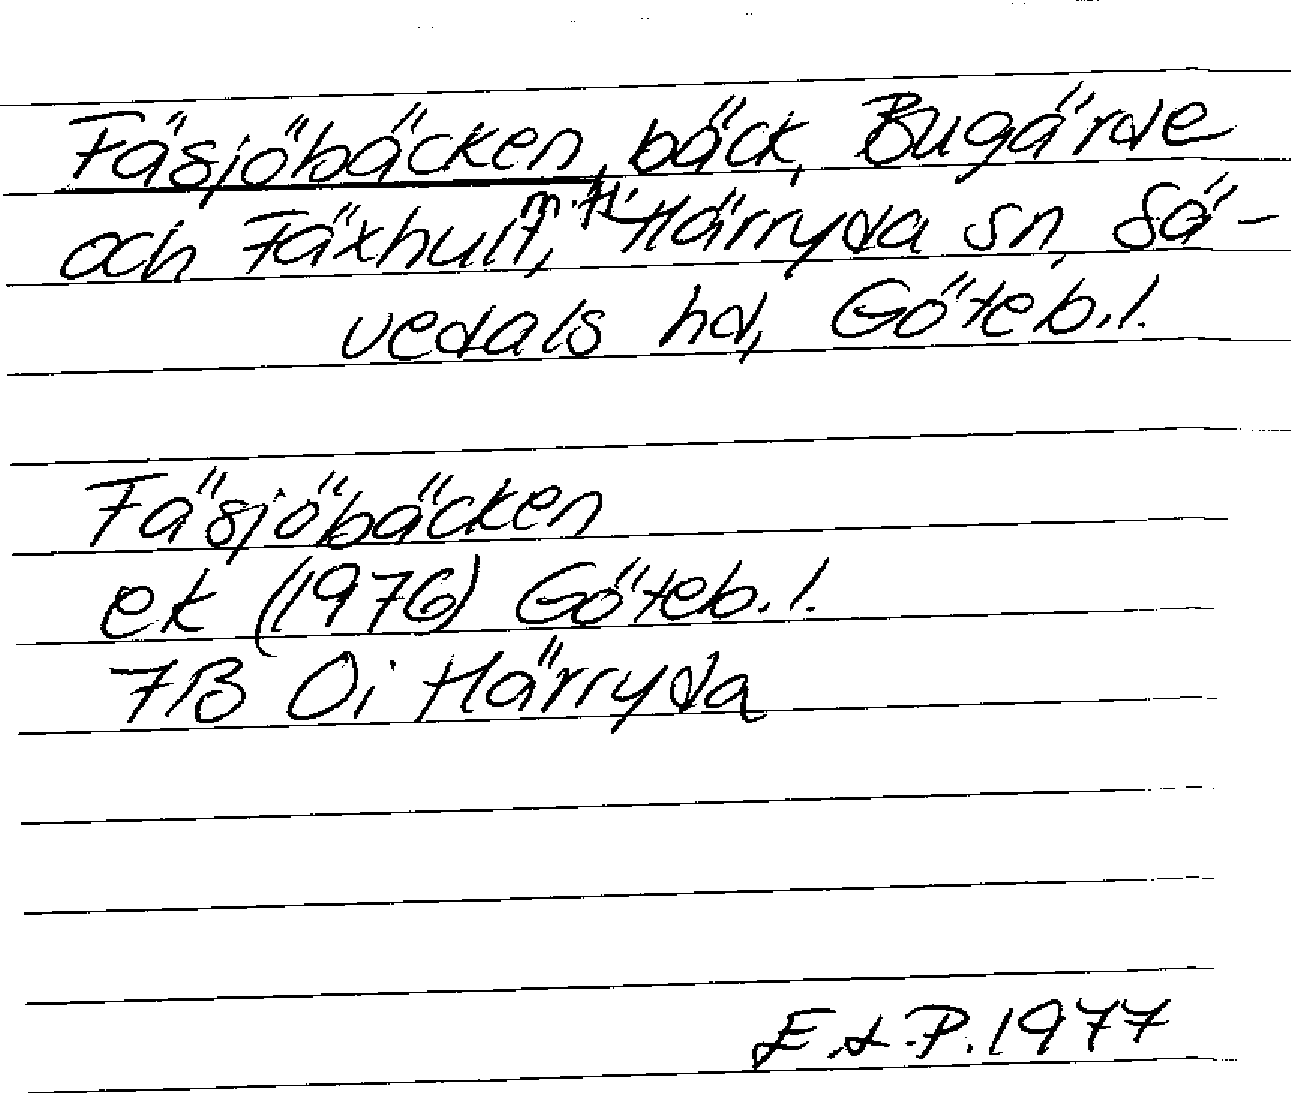 Fäsjöbäcken, bäck, Bugärde
och Fäxhult, m. fl. Härryda sn, Sä-
vedals hd, Göteb. l.
Fäsjöbäcken
ek (1976) Göteb. l.
7B 0i Härryda
1977